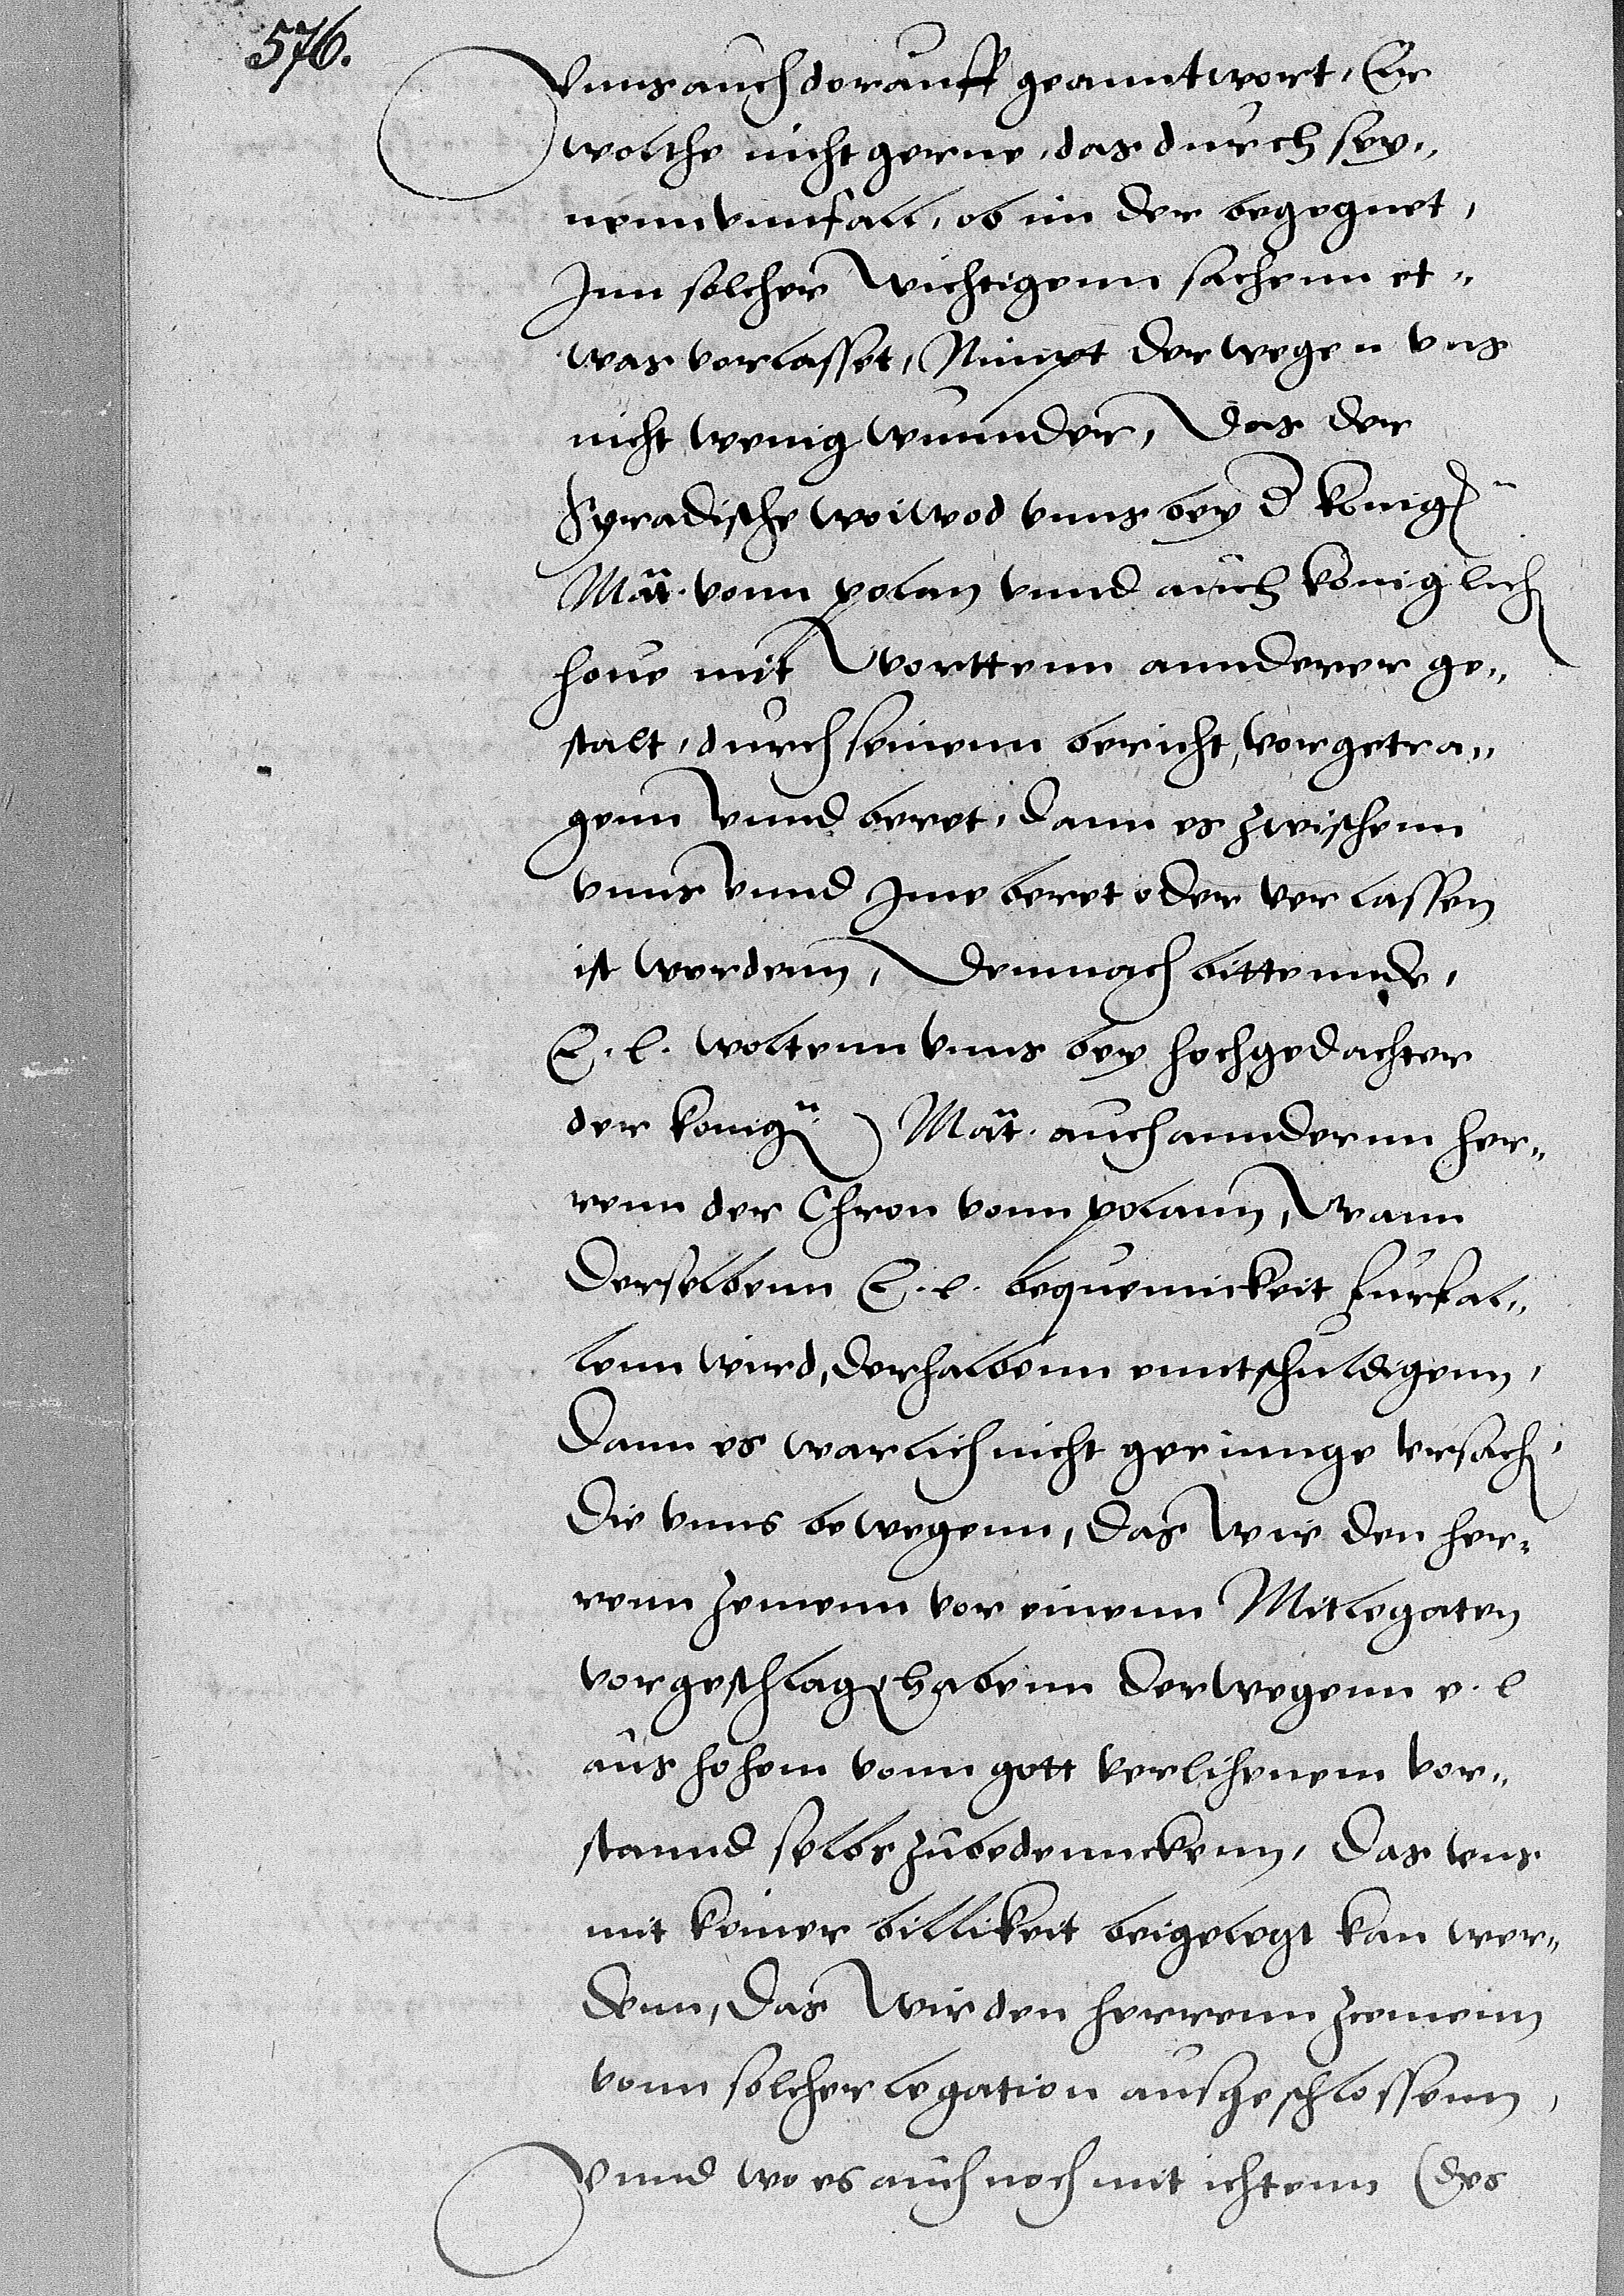 576.
Vnns auch dorauff geanntwort, Er
wolthe nicht gerne, das durch sey„
nenn vnnfall, ob im der begegnet,
Inn solchen wichtigenn sachenn et„
was vorlasset, Nimpt derwegen vns
nicht wenig wunnder, Das der
Syradische weiwod vnns bey d konig
Mät. vonn polan vnnd auch königlich
houe mit Wortten annderer ge„
stalt, durch seinenn bericht, vorgetra„
genn vnnd beret, dann es zwischenn
vnns vnnd Ime beret oder verlassen
ist wordenn, Demnach bittennde,
E. l. woltenn vnns bey hochgedachter
der konig Mät. auch annderenn her„
renn der Chron vonn polann, Wann
derselbenn E. l. bequemickeit furfal„
lenn wird, derhalbenn enntschuldigenn,
Dann es warlich nicht gerinnge vrsach
Die vnns bewegenn, das wir den her„
renn Zemenn vor einenn Mitlegaten
vorgeschlag habenn derwegenn e. l
aus hohem vonn gott verlihenem vor„
stannd selbs zubedennckenn, das vns
mit keiner billikeit beigelegt kan wer„
denn, das wir den herrenn Zemenn
vonn solcher legation ausgeschlossenn,
Vnnd wo es auch noch mit ichtenn (des